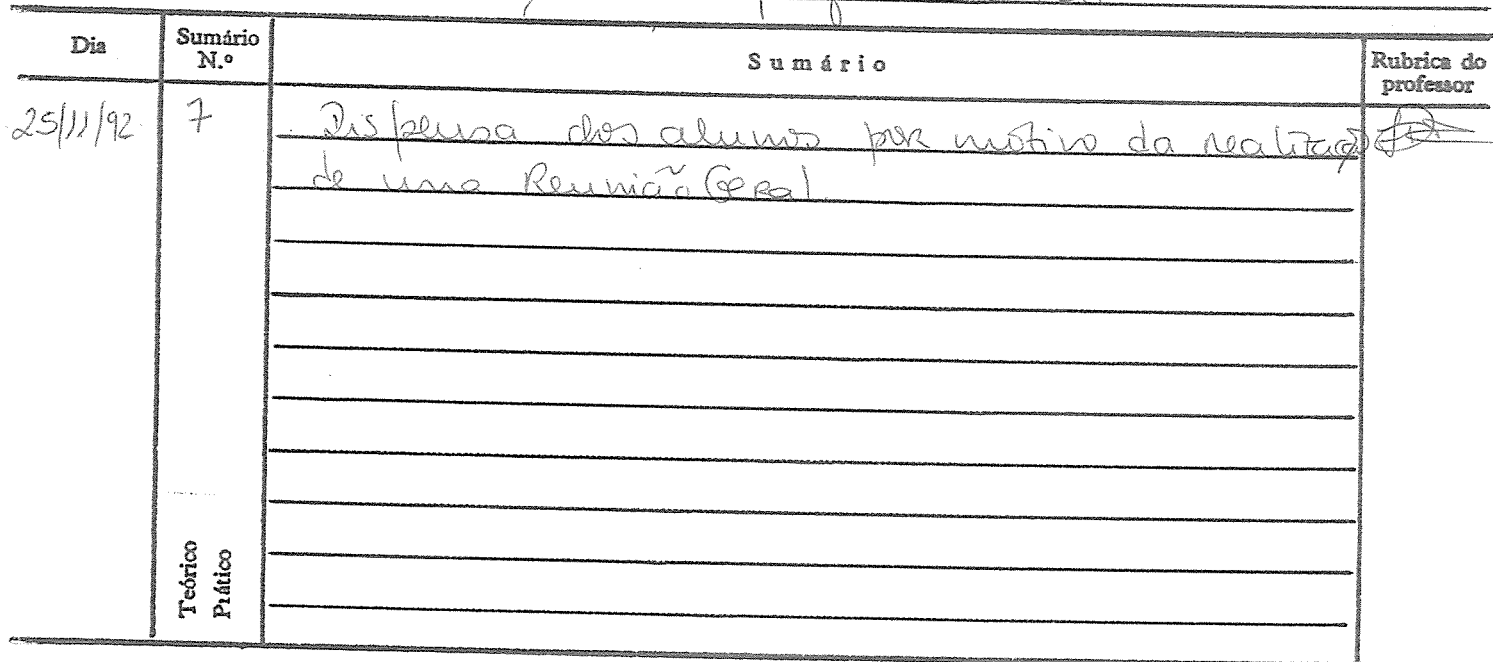 Dia Sumário N.º Sumário Rubrica do professor
25/11/92 7 Dispensa dos alunos por motivo da realização
de uma Reunião Geral
Teórico
Prático